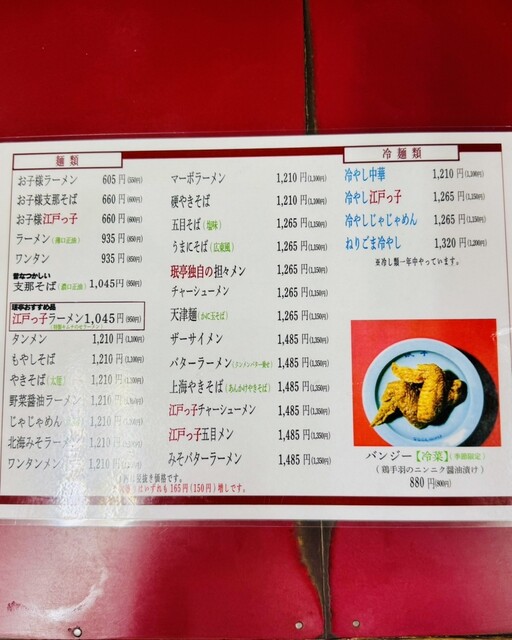 麺類
お子様ラーメン 605円(550円)
お子様支那そば 660円(600円)
お子様江戸っ子 660円(600円)
ラーメン(薄口正油) 935円(850円)
ワンタン 935円(850円)
昔なつかしい
支那そば(濃口正油) 1,045円(950円)
珉亭おすすめ品
江戸っ子ラーメン 1,045円(950円)
タンメン 1,210円(1,100円)
もやしそば 1,210円(1,100円)
やきそば 1,210円(1,100円)
野菜醤油ラーメン 1,210円
じゃじゃめん 1,210円
北海みそラーメン 1,210円
ワンタンメン 1,210円
マーボラーメン 1,210円(1,100円)
硬やきそば 1,210円(1,100円)
五目そば(塩味) 1,265円(1,150円)
うまにそば(広東風) 1,265円(1,150円)
珉亭独自の担々メン 1,265円(1,150円)
チャーシューメン 1,265円(1,150円)
天津麺(かに玉そば) 1,265円(1,150円)
ザーサイメン 1,485円(1,350円)
バターラーメン(タンメンバター乗せ) 1,485円(1,350円)
上海やきそば(あんかけやきそば) 1,485円(1,350円)
江戸っ子チャーシューメン 1,485円(1,350円)
江戸っ子五目メン 1,485円(1,350円)
みそバターラーメン 1,485円(1,350円)
税抜き価格です。
いずれも165円(150円)増しです。
冷麺類
冷やし中華 1,210円(1,100円)
冷やし江戸っ子 1,265円(1,150円)
冷やしじゃじゃめん 1,265円(1,150円)
ねりごま冷やし 1,320円(1,200円)
※冷し類一年中やっています。
バンジー【冷菜】(季節限定)
(鶏手羽のニンニク醤油漬け)
880円(800円)